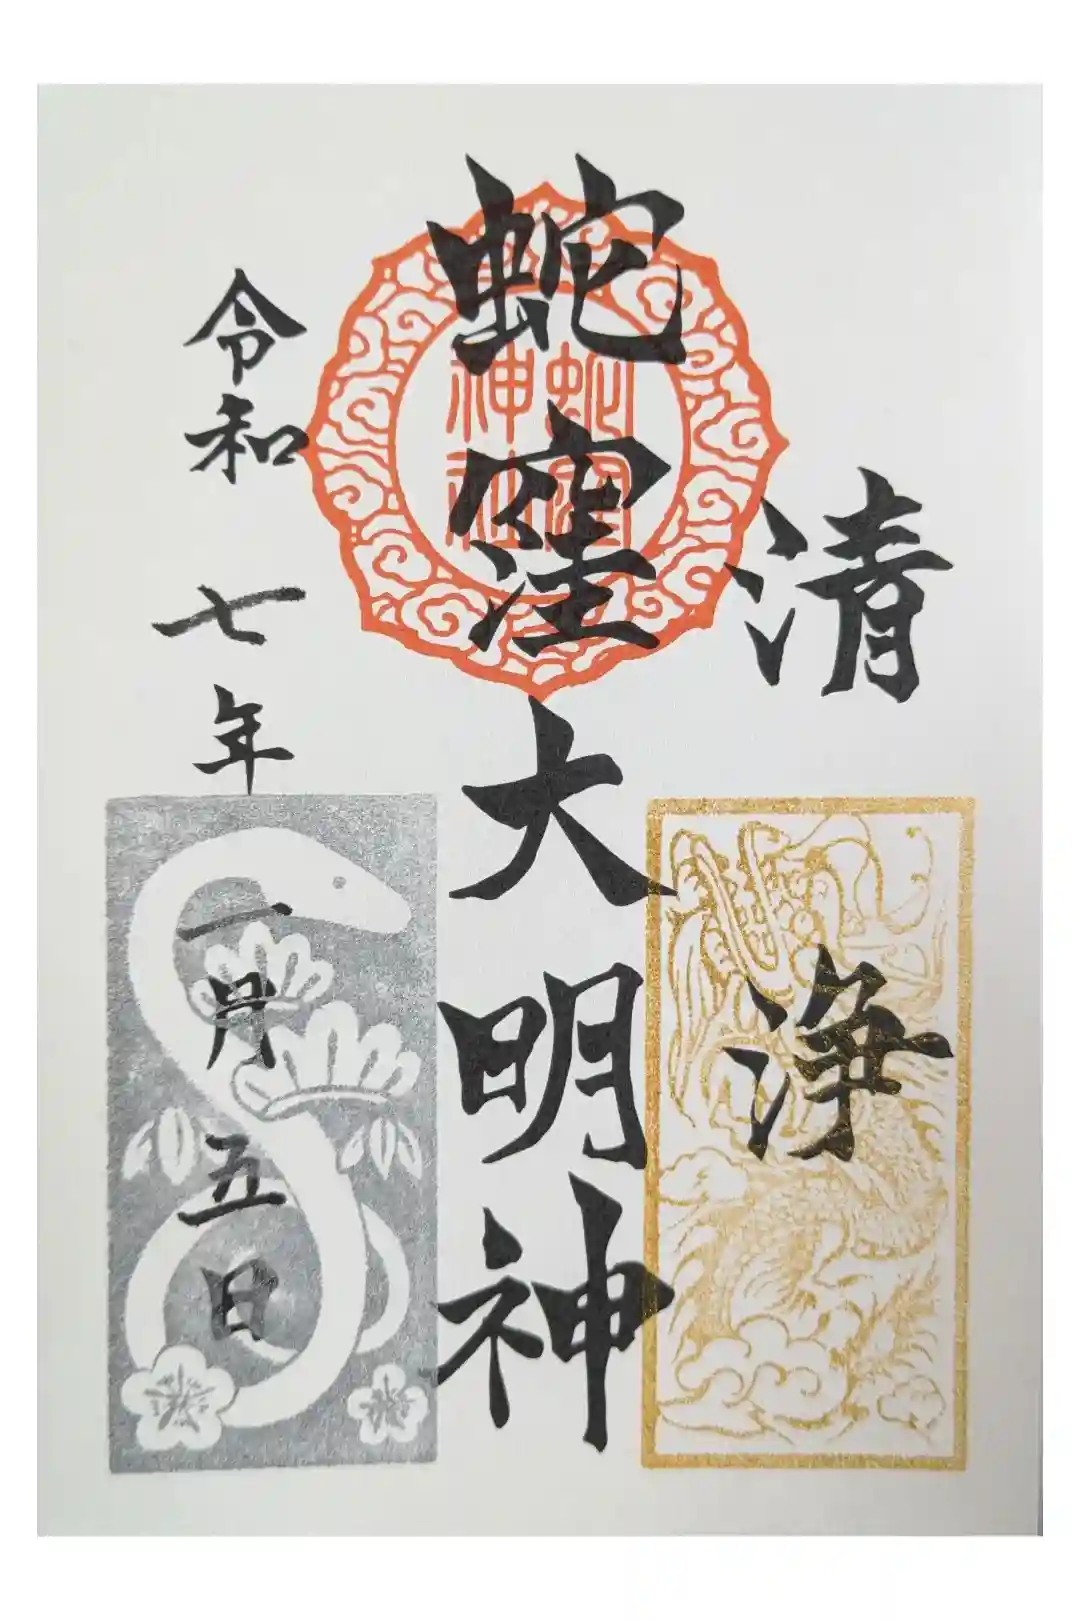 清浄
蛇窪大明神
蛇窪
神社
令和七年一月五日